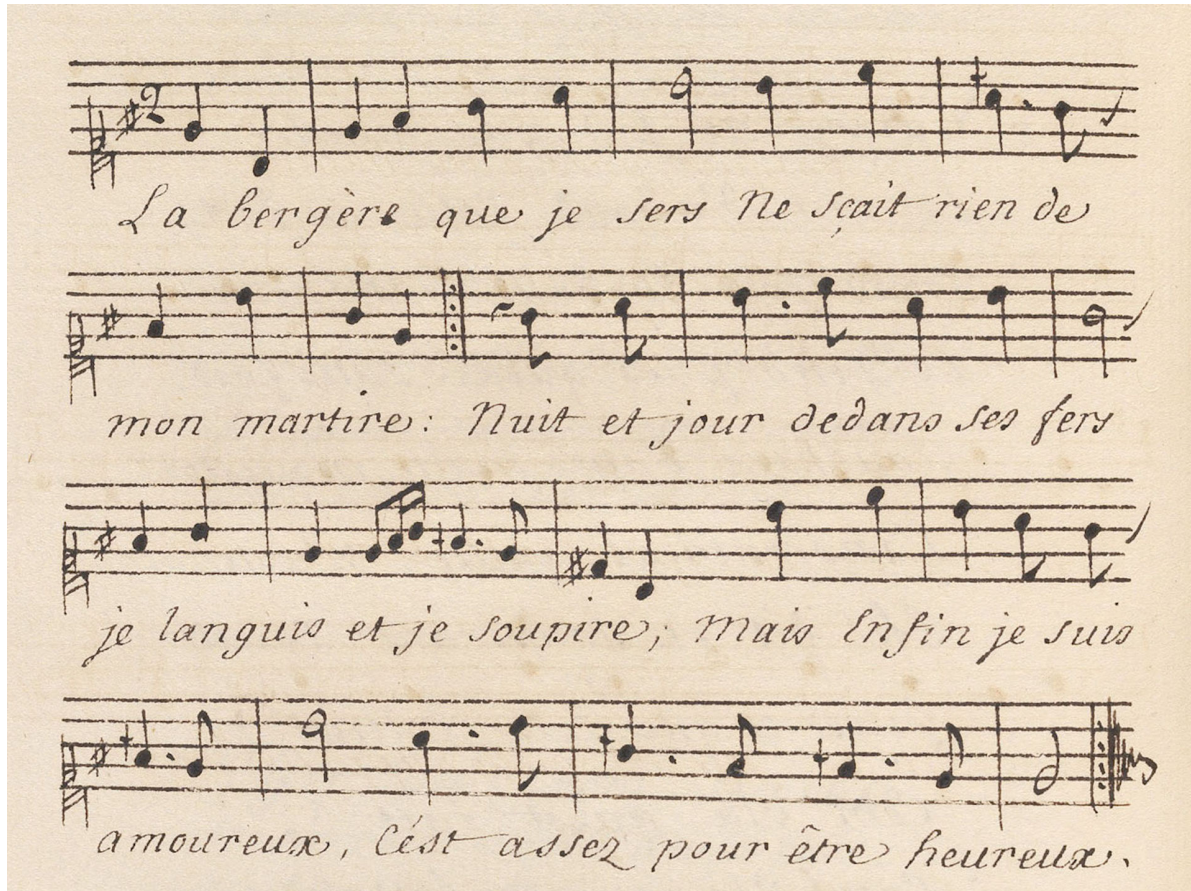 La bergère que je sers Ne sçait rien de
mon martire: Nuit et jour dedans ses fers
je languis et je soupire; Mais Enfin je suis
amoureux, C'ést assez pour être heureux.